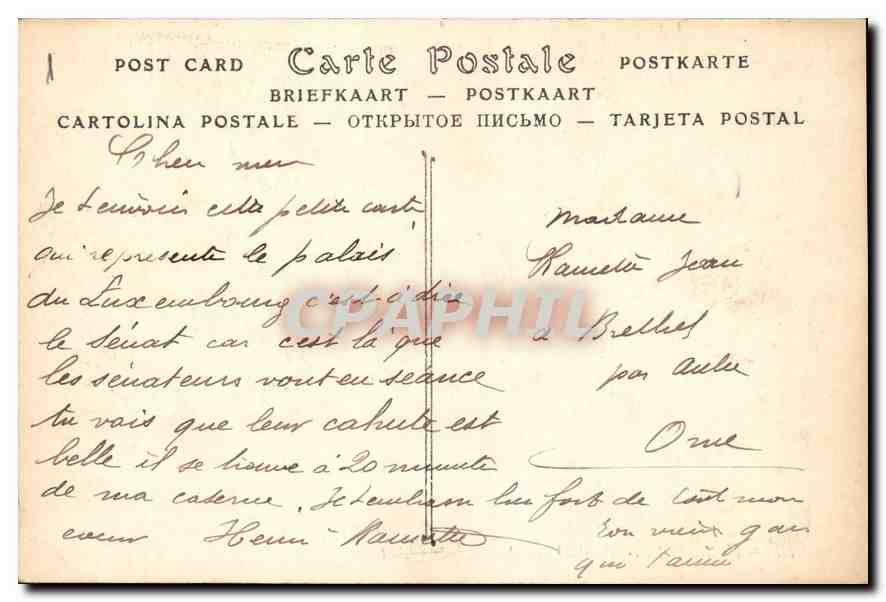 POST CARD Carte Postale POSTKARTE
BRIEFKAART — POSTKAART
CARTOLINA POSTALE — ОТКРЫТОЕ ПИСЬМО — TARJETA POSTAL
Je t'envoie cette petite carte
qui represente le palais
du Luxembourg c'est à dire
le Sénat car c'est là que
les sénateurs vont en séance
tu vois que leur cahute est
belle il se trouve à 20 minute
de ma caserne. Je t'embrasse bien fort de tout mon
coeur Henri Ramette
ton vieux gars
qui t'aime
Madame
Jean
à Brethel
par Aube
Orne
CPAPHIL